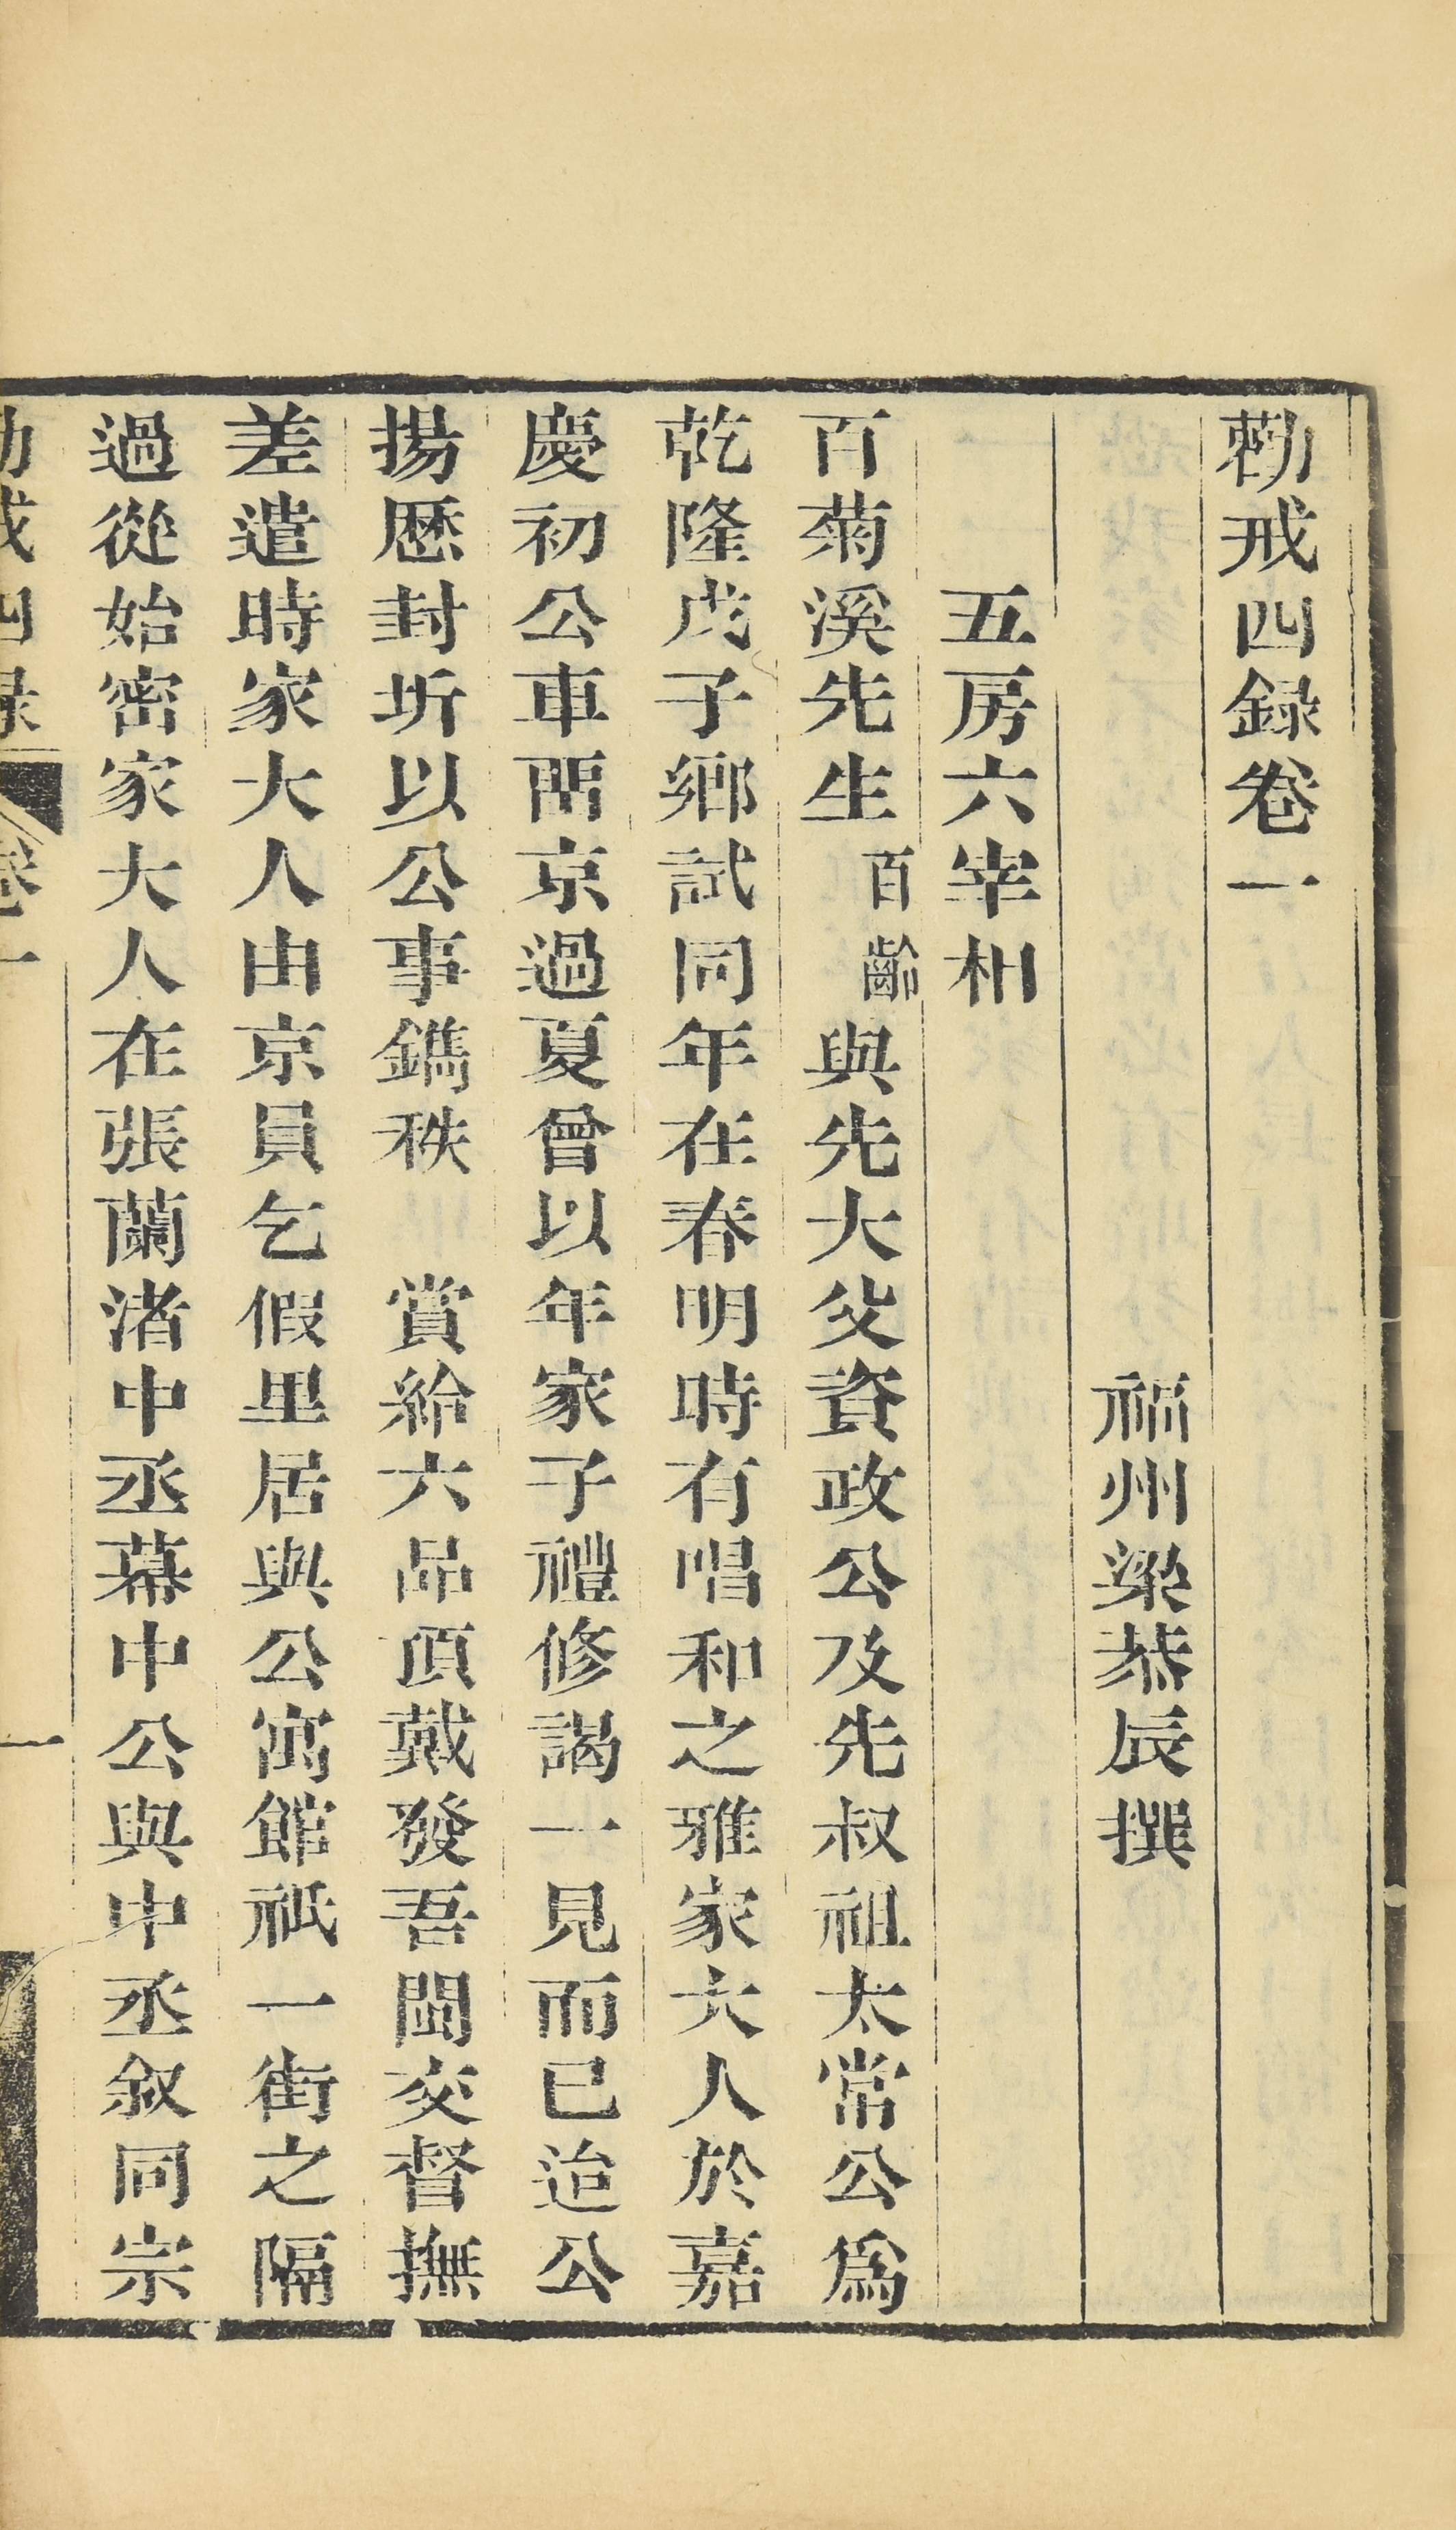 勸戒四錄卷一
福州梁恭辰撰
五房六宰相
百菊溪先生百齡與先大父資政公及先叔祖太常公爲
乾隆戊子鄉試同年在春明時有唱和之雅家大人於嘉
慶初公車兩京過夏曾以年家子禮修謁一見而已迨公
揚歷封圻以公事鐫秩　賞給六品頂戴發吾閩交督撫
差遣時家大人由京員乞假里居與公寓館祇一街之隔
過從始密家大人在張蘭渚中丞幕中公與中丞敘同宗
勸戒四錄　卷一　一